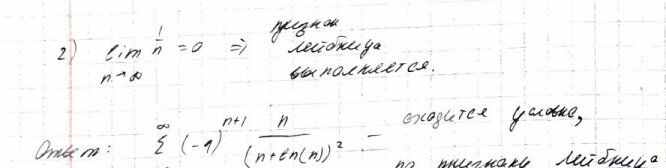 2) lim 1/n = 0 ⇒ признак
n→∞ лейбница
выполняется.
Ответ: ∞ Σ (-1)^{n+1} n/(n+ln(n))² - сходится условно,
по признаки лейбница